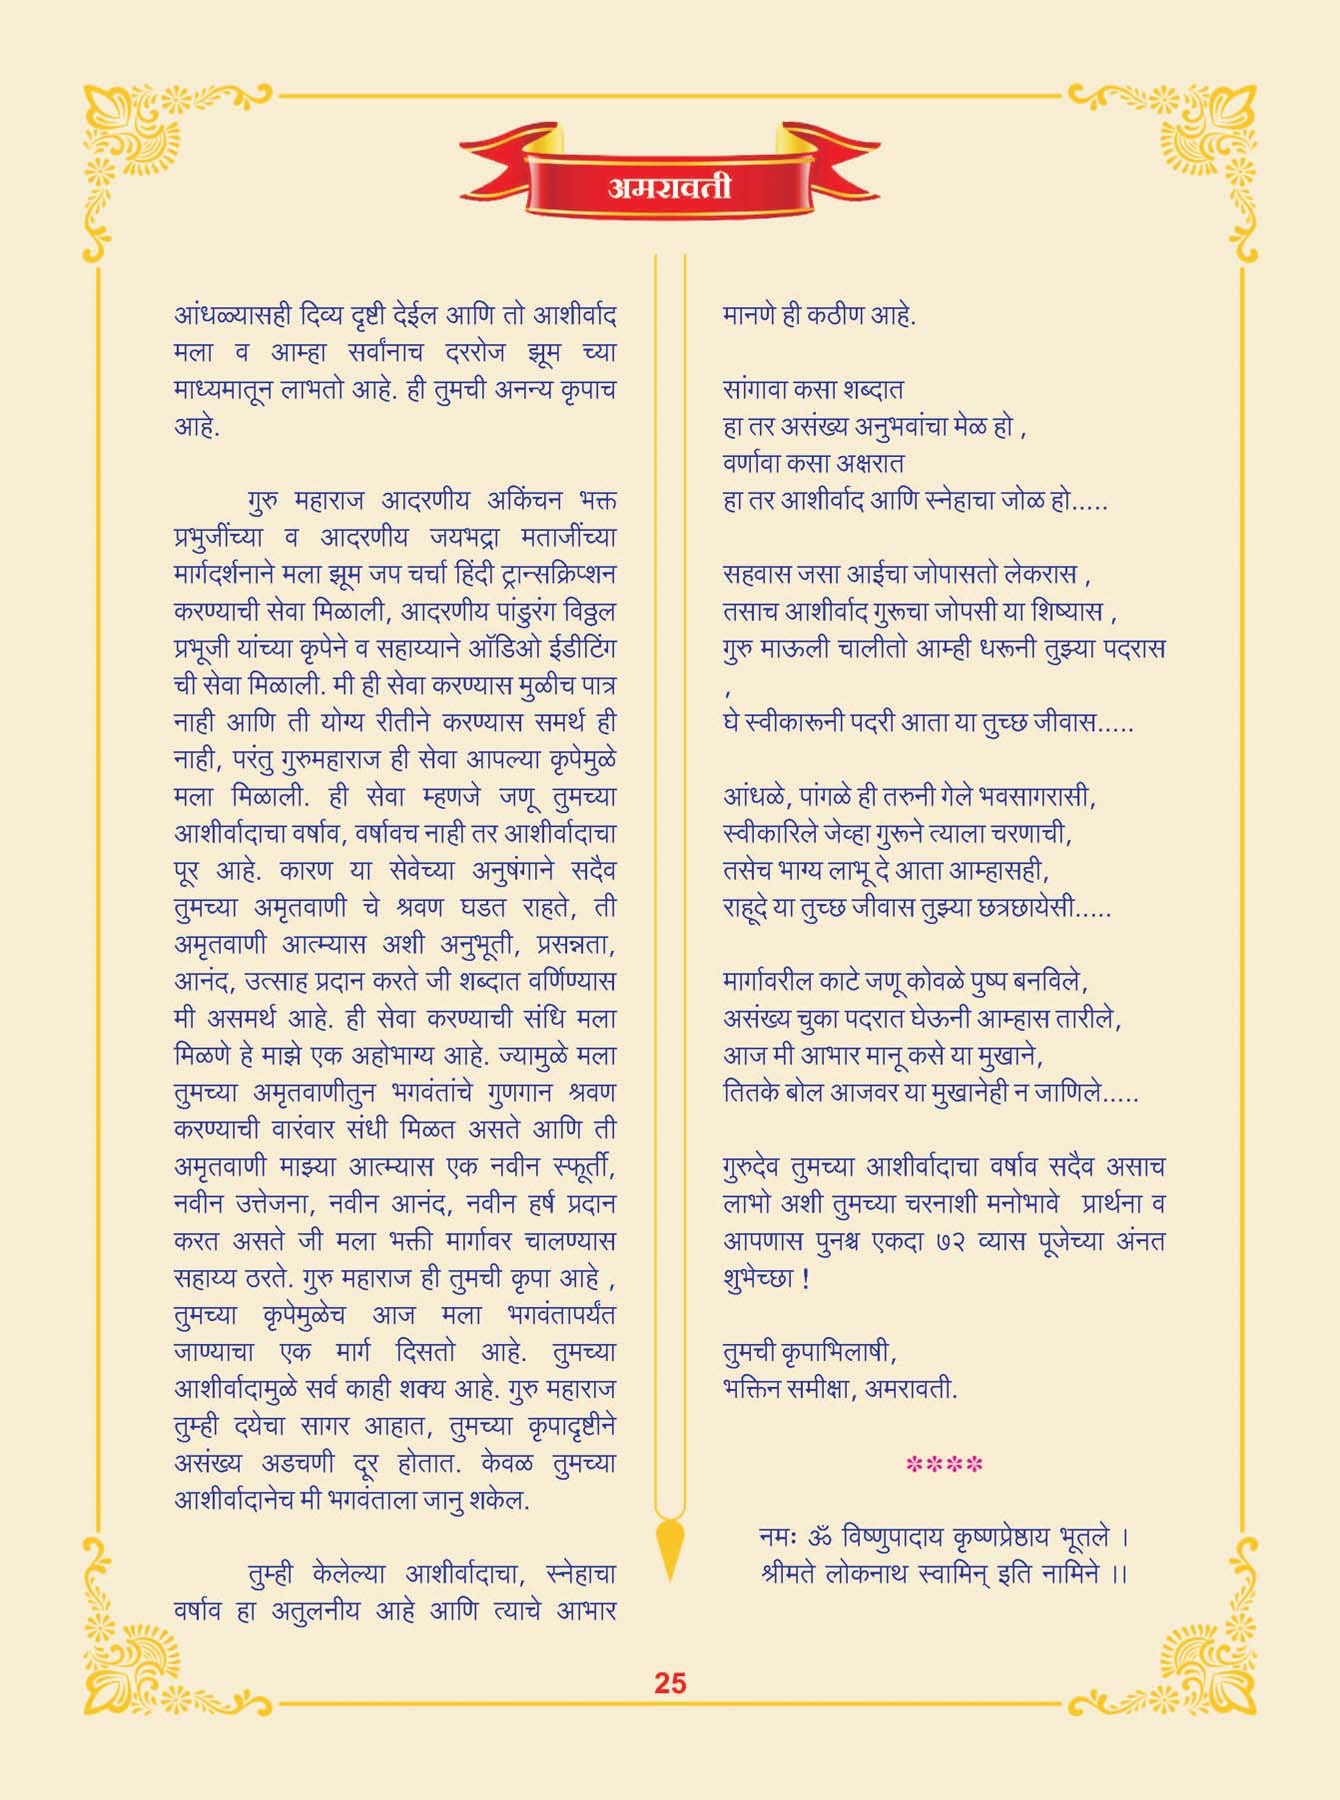 अमरावती
आंधळ्यासही दिव्य दृष्टी देईल आणि तो आशीर्वाद
मला व आम्हा सर्वांनाच दररोज झूम च्या
माध्यमातून लाभतो आहे. ही तुमची अनन्य कृपाच
आहे.
गुरु महाराज आदरणीय अकिंचन भक्त
प्रभुजींच्या व आदरणीय जयभद्रा मताजींच्या
मार्गदर्शनाने मला झूम जप चर्चा हिंदी ट्रान्सक्रिप्शन
करण्याची सेवा मिळाली, आदरणीय पांडुरंग विठ्ठल
प्रभूजी यांच्या कृपेने व सहाय्याने ऑडिओ ईडीटिंग
ची सेवा मिळाली. मी ही सेवा करण्यास मुळीच पात्र
नाही आणि ती योग्य रीतीने करण्यास समर्थ ही
नाही, परंतु गुरुमहाराज ही सेवा आपल्या कृपेमुळे
मला मिळाली. ही सेवा म्हणजे जणू तुमच्या
आशीर्वादाचा वर्षाव, वर्षावच नाही तर आशीर्वादाचा
पूर आहे. कारण या सेवेच्या अनुषंगाने सदैव
तुमच्या अमृतवाणी चे श्रवण घडत राहते, ती
अमृतवाणी आत्म्यास अशी अनुभूती, प्रसन्नता,
आनंद, उत्साह प्रदान करते जी शब्दात वर्णिण्यास
मी असमर्थ आहे. ही सेवा करण्याची संधि मला
मिळणे हे माझे एक अहोभाग्य आहे. ज्यामुळे मला
तुमच्या अमृतवाणीतुन भगवंतांचे गुणगान श्रवण
करण्याची वारंवार संधी मिळत असते आणि ती
अमृतवाणी माझ्या आत्म्यास एक नवीन स्फूर्ती,
नवीन उत्तेजना, नवीन आनंद, नवीन हर्ष प्रदान
करत असते जी मला भक्ती मार्गावर चालण्यास
सहाय्य ठरते. गुरु महाराज ही तुमची कृपा आहे ,
तुमच्या कृपेमुळेच आज मला भगवंतापर्यंत
जाण्याचा एक मार्ग दिसतो आहे. तुमच्या
आशीर्वादामुळे सर्व काही शक्य आहे. गुरु महाराज
तुम्ही दयेचा सागर आहात, तुमच्या कृपादृष्टीने
असंख्य अडचणी दूर होतात. केवळ तुमच्या
आशीर्वादानेच मी भगवंताला जानु शकेल.
तुम्ही केलेल्या आशीर्वादाचा, स्नेहाचा
वर्षाव हा अतुलनीय आहे आणि त्याचे आभार
मानणे ही कठीण आहे.
सांगावा कसा शब्दात
हा तर असंख्य अनुभवांचा मेळ हो ,
वर्णावा कसा अक्षरात
हा तर आशीर्वाद आणि स्नेहाचा जोळ हो.....
सहवास जसा आईचा जोपासतो लेकरास ,
तसाच आशीर्वाद गुरूचा जोपसी या शिष्यास ,
गुरु माऊली चालीतो आम्ही धरूनी तुझ्या पदरास
,
घे स्वीकारूनी पदरी आता या तुच्छ जीवास.....
आंधळे, पांगळे ही तरुनी गेले भवसागरासी,
स्वीकारिले जेव्हा गुरूने त्याला चरणाची,
तसेच भाग्य लाभू दे आता आम्हासही,
राहूदे या तुच्छ जीवास तुझ्या छत्रछायेसी.....
मार्गावरील काटे जणू कोवळे पुष्प बनविले,
असंख्य चुका पदरात घेऊनी आम्हास तारीले,
आज मी आभार मानू कसे या मुखाने,
तितके बोल आजवर या मुखानेही न जाणिले.....
गुरुदेव तुमच्या आशीर्वादाचा वर्षाव सदैव असाच
लाभो अशी तुमच्या चरनाशी मनोभावे प्रार्थना व
आपणास पुनश्च एकदा ७२ व्यास पूजेच्या अंनत
शुभेच्छा !
तुमची कृपाभिलाषी,
भक्तिन समीक्षा, अमरावती.
****
नमः ॐ विष्णुपादाय कृष्णप्रेष्ठाय भूतले ।
श्रीमते लोकनाथ स्वामिन् इति नामिने ।।
25